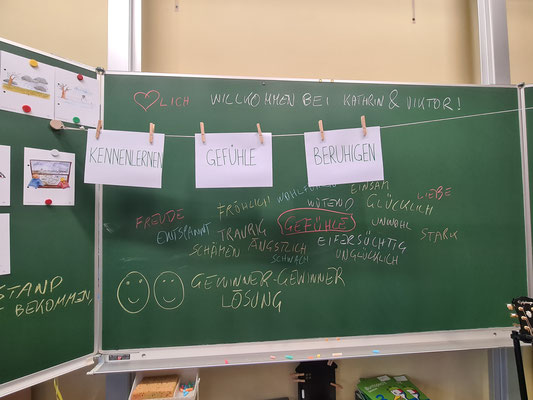 ♡LICH WILLKOMMEN BEI KATHRIN & VIKTOR!
KENNENLERNEN
GEFÜHLE
BERUHIGEN
EINSAM
FRÖHLICH
WÜTEND
GLÜCKLICH
LIEBE
FREUDE
ENTSPANNT
TRAURIG
GEFÜHLE
UNWOHL
STARK
SCHÄMEN
ÄNGSTLICH
EIFERSÜCHTIG
SCHWACH
UNGLÜCKLICH
GEWINNER-GEWINNER
LÖSUNG
STAND
BEKOMMEN,